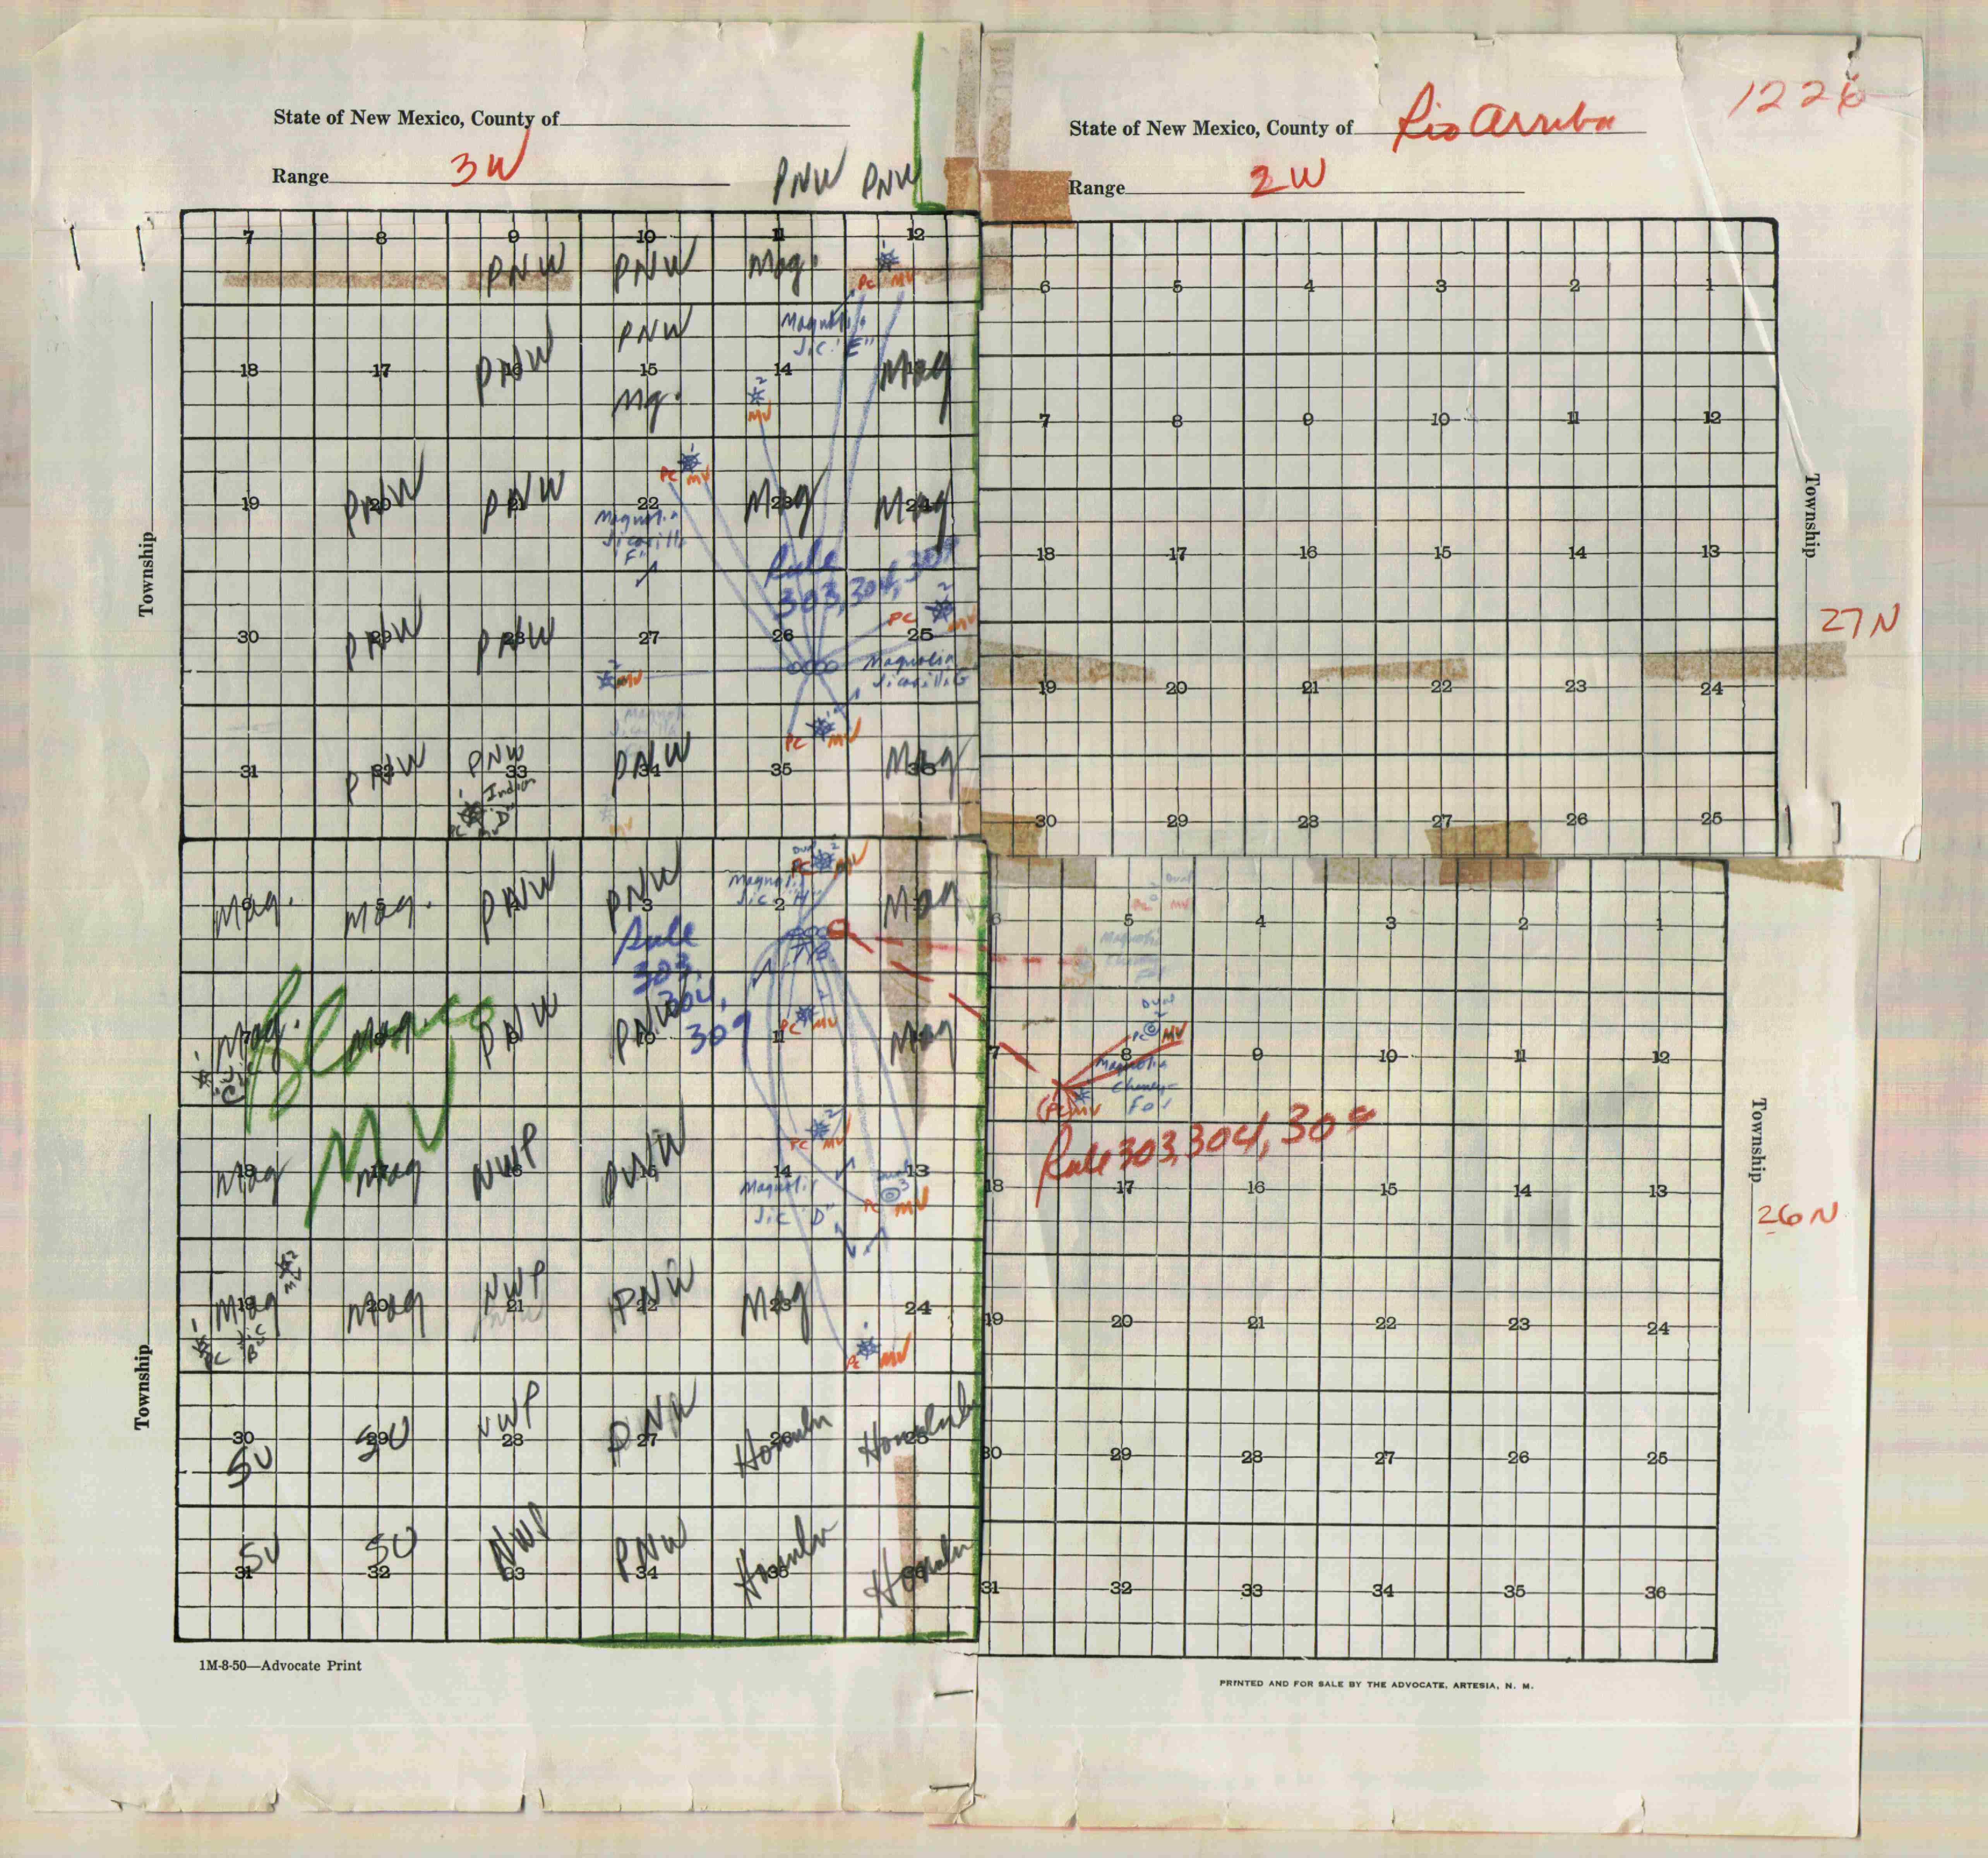 1226
State of New Mexico, County of
State of New Mexico, County of Rio Arriba
Range 3W
Range 2W
PNW PNW
7 8 9 10 11 12
PNW PNW Mag.
PC MV
PNW
Magnolia
Jic. "E"
18 17 16 15 14 13
PNW Mag
Mg.
2
MV
1
PC MV
19 20 21 22 23 24
PNW PNW Mag Mag
Magnolia
Jicarilla
"F"
Rule
303, 304, 309
2
PC MV
30 29 28 27 26 25
PNW PNW
Magnolia
Jicarilla G
2
MV
1
PC MV
31 32 33 34 35 36
PNW PNW PNW Mag
1 Indian
"D"
PC MV
MV
Township
6 5 4 3 2 1
7 8 9 10 11 12
18 17 16 15 14 13
19 20 21 22 23 24
30 29 28 27 26 25
Township
27 N
Dual 2
PC MV
Magnolia
Jic. "H"
6 5 4 3 2 1
Mag. Mag. PNW PNW Mag
Rule
303,
304,
309
TB
7 8 9 10 11 12
Mag. Mag. PNW PNW Mag
1
Jic
"C"
PC MV
Blanco
MV
18 17 16 15 14 13
Mag Mag NWP PNW
2
PC MV
Magnolia
Jic "D"
Dual
3
PC MV
19 20 21 22 23 24
Mag Mag NWP PNW Mag
2
MV
1
PC Jic
"B"
PC MV
30 29 28 27 26 25
SU SU NWP PNW Honolulu
31 32 33 34 35 36
SU SU NWP PNW
Township
6 5 4 3 2 1
Dual
PC MV
Magnolia
Dual
PC MV
7 8 9 10 11 12
Magnolia
Cheney-
Fed
PC MV
Rule 303, 304, 309
18 17 16 15 14 13
19 20 21 22 23 24
30 29 28 27 26 25
31 32 33 34 35 36
Township
26 N
1M-8-50—Advocate Print
PRINTED AND FOR SALE BY THE ADVOCATE, ARTESIA, N. M.